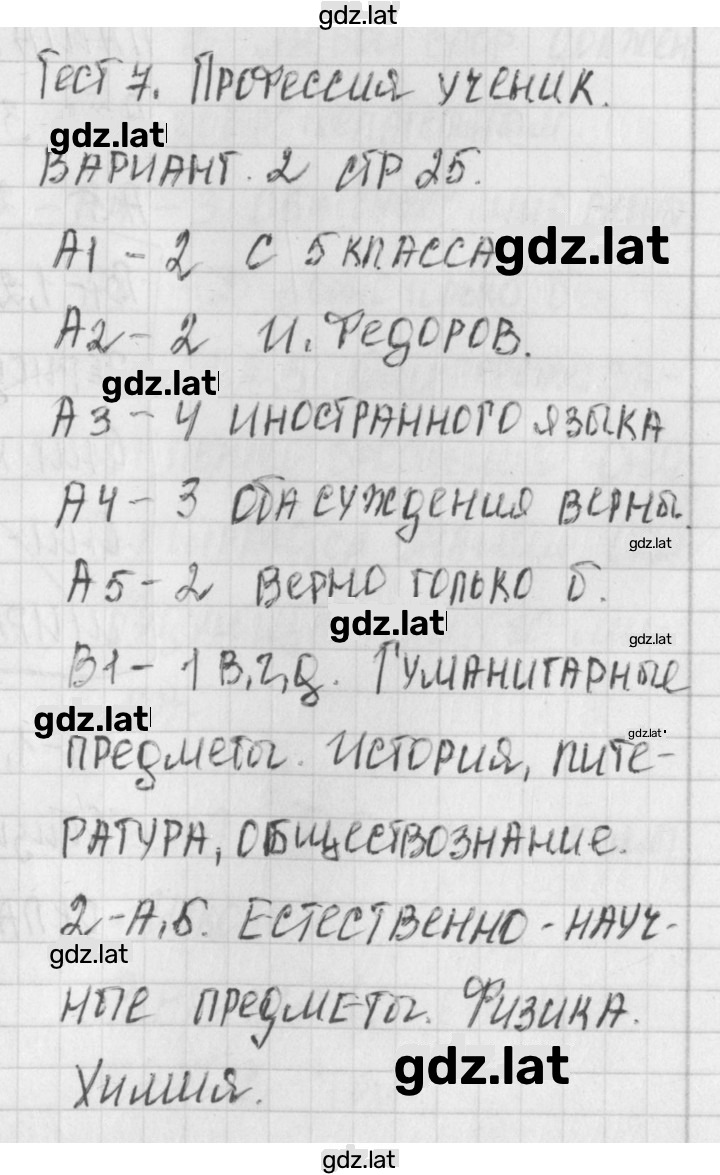 gdz.lat
Тест 7. Профессия ученик.
gdz.lat
Вариант. 2 стр 25.
А1 - 2 с 5 класса gdz.lat
А2 - 2 И. Федоров.
gdz.lat
А3 - 4 иностранного языка
А4 - 3 Оба суждения верны.
gdz.lat
А5 - 2 Верно только б.
gdz.lat gdz.lat
В1 - 1 в,г,д. Гуманитарные
gdz.lat gdz.lat
предметы. История, лите-
ратура, обществознание.
2 - А,Б. Естественно - науч-
gdz.lat
ные предметы. Физика.
gdz.lat
Химия.
gdz.lat